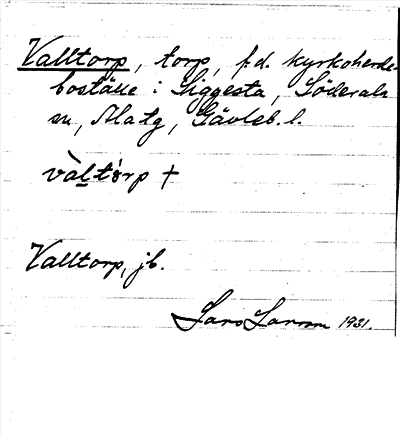 Valltorp, torp, f.d. kyrkoherde-
boställe i Siggesta, Söderala
sn, Alatg, Gävleb. l.
vàltòrp +
Valltorp, jb.
Lars Larsson 1931.